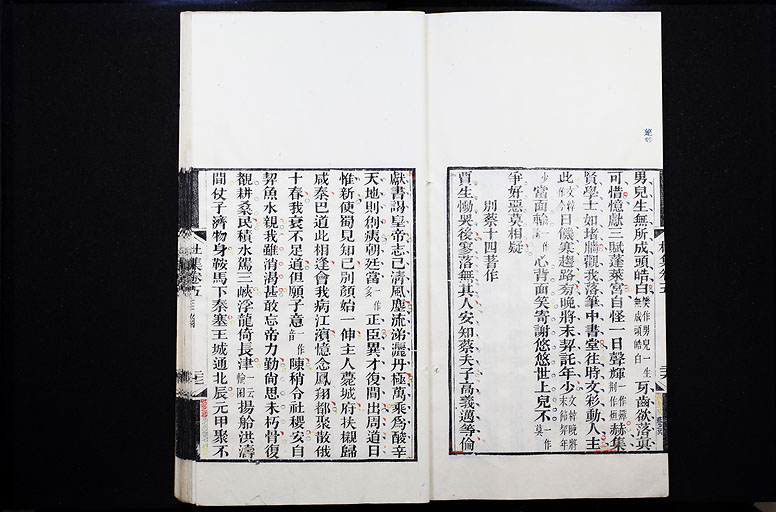 男兒生無所成頭皓白 英作男兒一生無成頭皓白 牙齒欲落真
可惜憶獻三賦蓬萊宮自怪一日聲輝 一作輝 赫集
賢學士如堵牆觀我落筆中書堂往時文彩動人主
此日饑寒趨路旁晚將末契託年少
當面輸心背面笑寄謝悠悠世上兒不 一作莫
爭好惡莫相疑
別蔡十四著作
賈生慟哭後寥落無其人安知蔡夫子高義邁等倫
獻書謁皇帝志已清風塵流涕灑丹極萬乘為酸辛
天地則創痍朝廷當 一作多 正臣異才復間出周道日
惟新使蜀見知己別顏始一伸主人薨城府扶櫬歸
咸秦巴道此相逢會我病江濱憶念鳳翔都聚散俄
十春我衰不足道但願子意 一作音 陳稍令社稷安自
契魚水親我雖消渴甚敢忘帝力勤尚思未朽骨復
覩耕桑民積水駕三峽浮龍倚長津 揚舲洪濤
間仗子濟物身鞍馬下秦塞王城通北辰元甲聚不
杜集卷五